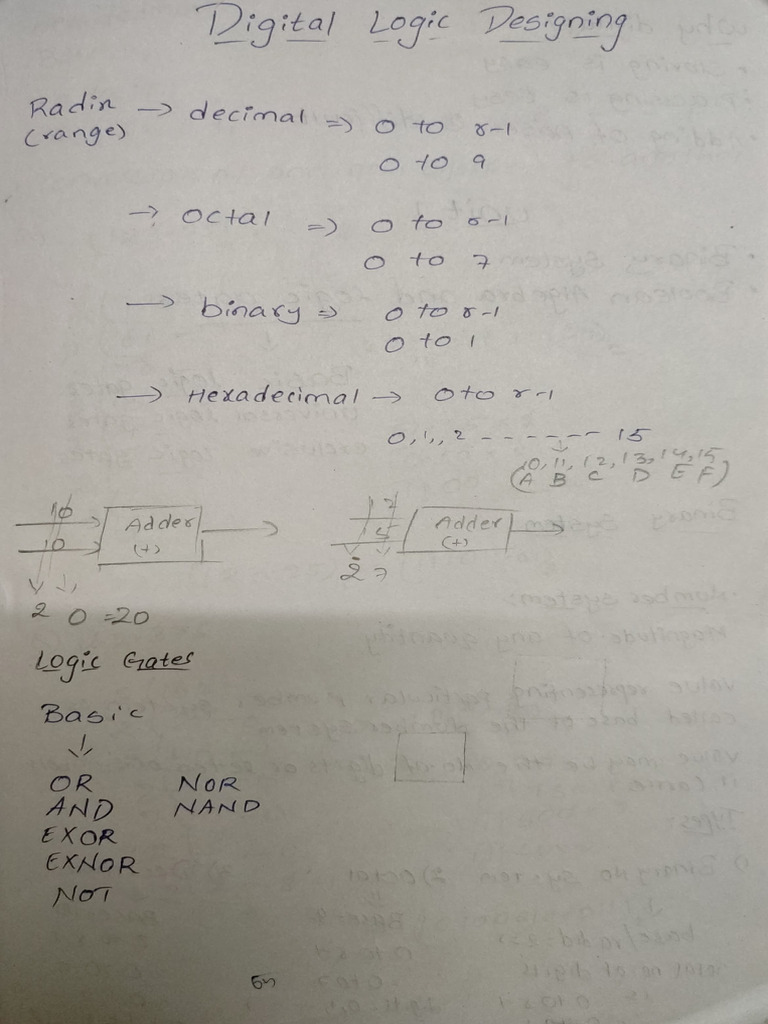 Digital Logic Designing
Radix → decimal ⇒ 0 to r-1
(range)
0 to 9
→ octal ⇒ 0 to r-1
0 to 7
→ binary ⇒ 0 to r-1
0 to 1
→ Hexadecimal → 0 to r-1
0,1,,2 ------ 15
(10, 11, 12, 13, 14, 15
A B C D E F)
10 Adder → 12 Adder →
10 (+) 15 (+)
2 0 =20 2 7
Logic Gates
Basic
↓
OR NOR
AND NAND
EXOR
EXNOR
NOT